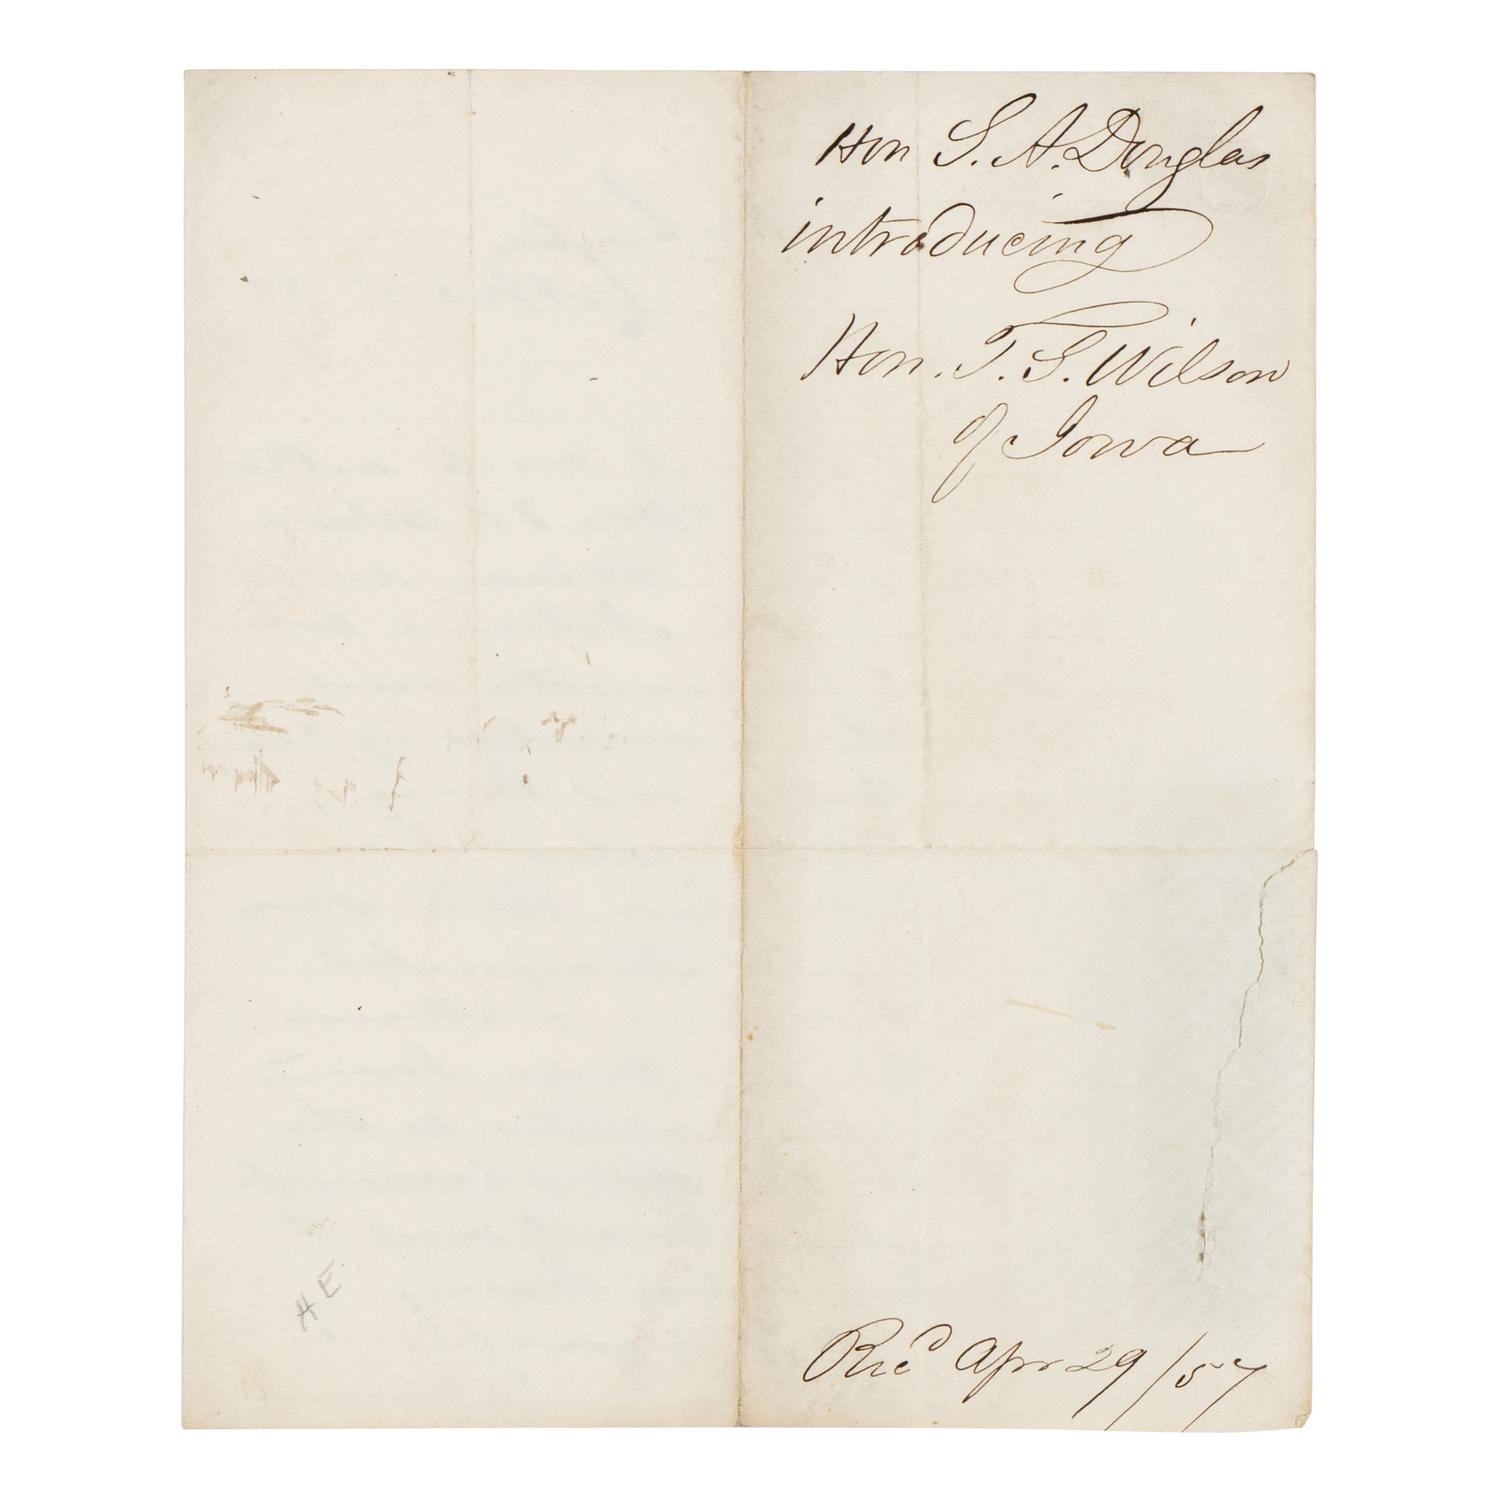 Hon S. A. Douglas
introducing
Hon. T. S. Wilson
of Iowa
Rec'd Apr 29/57
H E